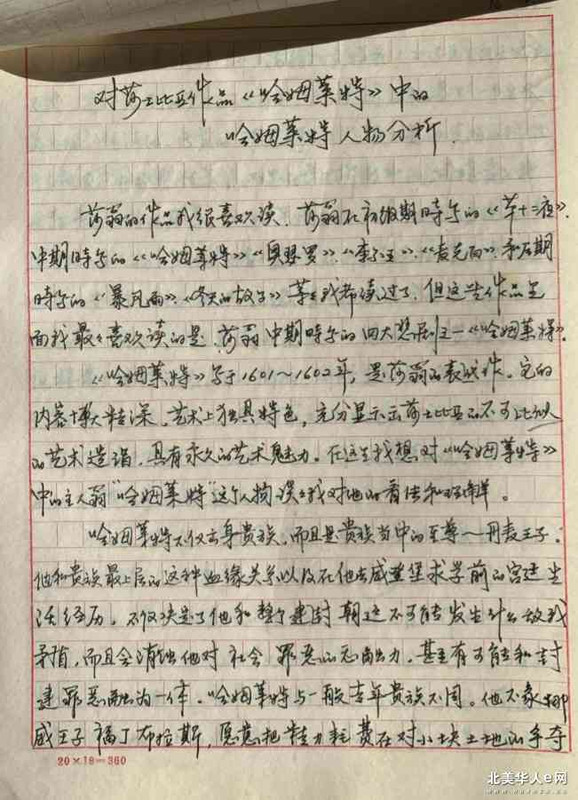 对莎士比亚作品《哈姆莱特》中的
哈姆莱特人物分析.
莎翁的作品我很喜欢读.莎翁在初级期时写的《第十二夜》.
中期时写的《哈姆莱特》《奥瑟罗》.《李尔王》.《麦克白》.和后期
时写的《暴风雨》、《冬天的故事》等等我都读过了.但这些作品里
面我最最喜欢读的是.莎翁中期时写的四大悲剧之一《哈姆莱特》.
《哈姆莱特》写于1601~1602年,是莎翁的代表作.它的
内容博大精深.艺术上独具特色,充分显示出莎士比亚不可比似
的艺术造诣,具有永久的艺术魅力.在这里我想对《哈姆莱特》
中的主人翁"哈姆莱特"这个人物谈谈我对他的看法和理解。
哈姆莱特不仅出身贵族.而且是贵族当中的至尊~丹麦王子;
他和贵族最上层的这种血缘关系以及在他去威登堡求学前的宫廷生
活经历.不仅决定了他和整个建封朝廷不可能发生什么敌我
矛盾,而且会消蚀他对社会罪恶的忍耐力.甚至有可能和封
建罪恶融为一体.哈姆莱特与一般青年贵族不同。他不象挪
威王子福丁布拉斯,愿意把精力耗费在对小块土地的争夺
20×18=360
北美华人e网